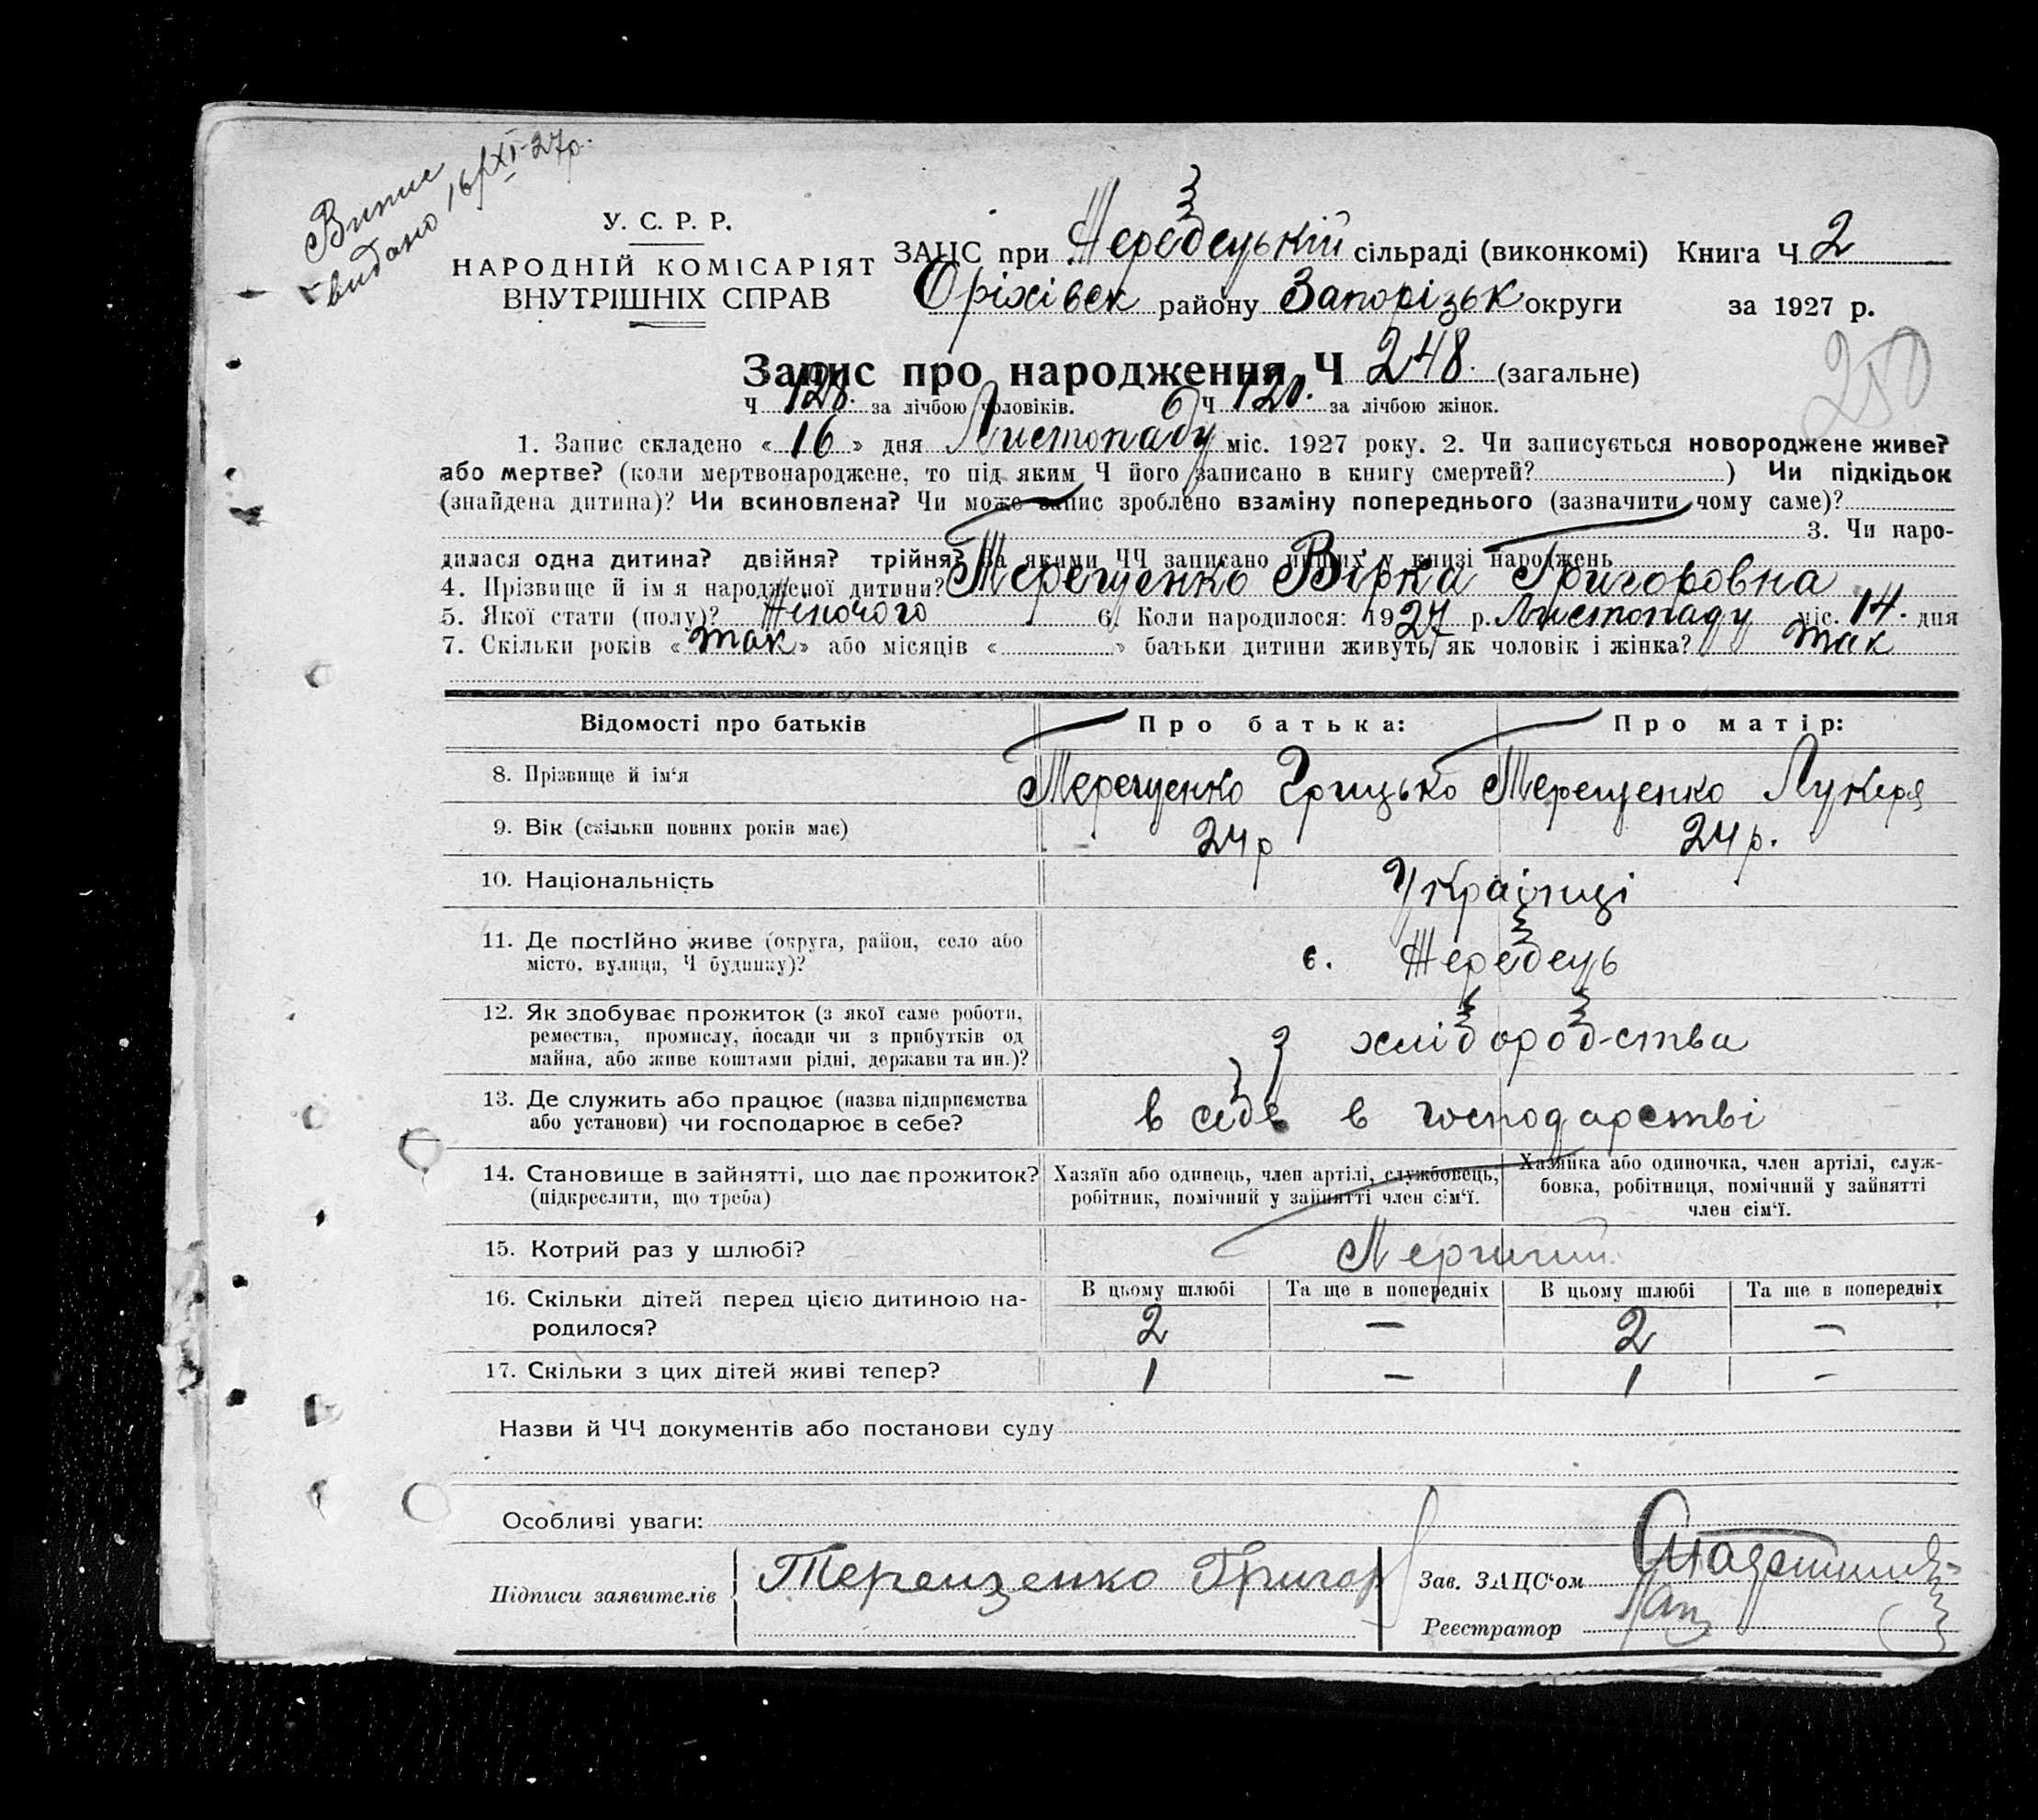 Випис
видано 16/XI-27р.
У. С. Р. Р.
НАРОДНІЙ КОМІСАРІЯТ
ВНУТРІШНІХ СПРАВ
ЗАЦС при Жеребецькій сільраді (виконкомі) Книга Ч 2
Оріхівськ району Запорізьк округи за 1927 р.
250
Запис про народження Ч 248. (загальне)
Ч 128. за лічбою чоловіків. Ч 120. за лічбою жінок.
1. Запис складено « 16 » дня Листопаду міс. 1927 року. 2. Чи записується новороджене живе?
або мертве? (коли мертвонароджене, то під яким Ч його записано в книгу смертей? ) Чи підкідьок
(знайдена дитина)? Чи всиновлена? Чи може запис зроблено взаміну попереднього (зазначити чому саме)?
3. Чи наро-
дилася одна дитина? двійня? трійня? За якими ЧЧ записано инших у книзі народжень
4. Прізвище й ім'я народженої дитини? Терещенко Вірка Григоровна
5. Якої стати (полу)? Жіночого 6. Коли народилося: 1927 р. Листопаду міс. 14. дня
7. Скільки років « так » або місяців « » батьки дитини живуть як чоловік і жінка? так
Відомості про батьків Про батька: Про матір:
8. Прізвище й ім'я Терещенко Грицько Терещенко Лукеря
9. Вік (скільки повних років має) 24р 24р.
10. Національність Українці
11. Де постійно живе (округа, район, село або
місто, вулиця, Ч будинку)? с. Жеребець
12. Як здобуває прожиток (з якої саме роботи,
ремества, промислу, посади чи з прибутків од
майна, або живе коштами рідні, держави та ин.)? з хліборобства
13. Де служить або працює (назва підприємства
або установи) чи господарює в себе? в себе в господарстві
14. Становище в зайнятті, що дає прожиток?
(підкреслити, що треба)
Хазяїн або одинець, член артілі, службовець,
робітник, помічний у зайнятті член сім'ї.
Хазяйка або одиночка, член артілі, служ-
бовка, робітниця, помічний у зайнятті
член сім'ї.
15. Котрий раз у шлюбі? Перший
16. Скільки дітей перед цією дитиною на-
родилося?
В цьому шлюбі Та ще в попередніх В цьому шлюбі Та ще в попередніх
2 — 2 —
17. Скільки з цих дітей живі тепер? 1 — 1 —
Назви й ЧЧ документів або постанови суду
Особливі уваги:
Підписи заявителів Терещенко Григор
Зав. ЗАЦС'ом
Реєстратор